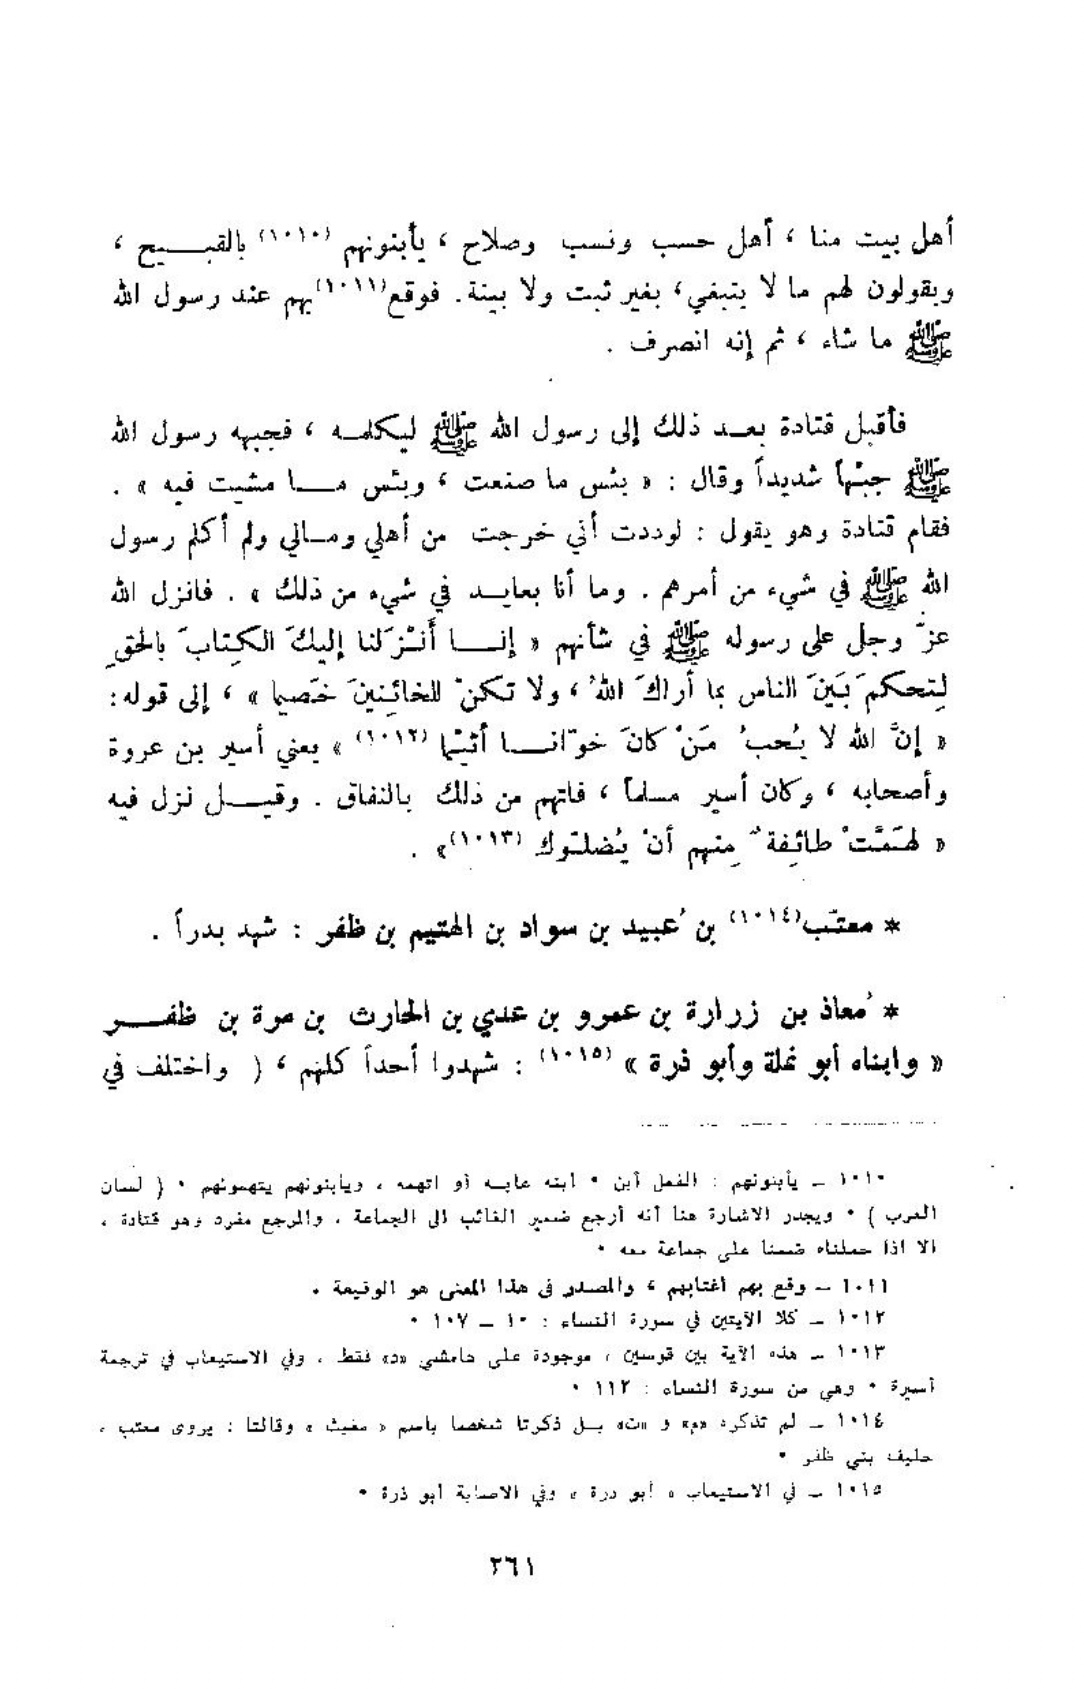 أهل بيت منا ، أهل حسب ونسب وصلاح ، يأبنونهم (١٠١٠) بالقبـــيح ،
ويقولون لهم ما لا ينبغي، بغير ثبت ولا بينة. فوقع(١٠١١)بهم عند رسول الله
ﷺ ما شاء ، ثم إنه انصرف .
فأقبل قتادة بعـد ذلك إلى رسول الله ﷺ ليكلمـه ، فجبهه رسول الله
ﷺ جبْهاً شديداً وقال : « بئس ما صنعت ، وبئس مـــا مشيت فيه » .
فقام قتادة وهو يقول : لوددت أني خرجت من أهلي ومـالي ولم أكلم رسول
الله ﷺ في شيء من أمرهم . وما أنا بعايـد في شيء من ذلك » . فانزل الله
عزّ وجل على رسوله ﷺ في شأنهم « إنـــا أَنْزَلنا إليكَ الكِتابَ بالحقِ
لِتحكمَ بَينَ الناس بما أراكَ اللهُ ، ولا تكنْ للخائِنينَ خَصيما » ، إلى قوله:
« إنَّ الله لا يُحبُ مَنْ كانَ خوّانـــا أثيْما (١٠١٢) » يعني أسير بن عروة
وأصحابه ، وكان أسير مسلماً ، فاتهم من ذلك بالنفاق . وقيـــل نزل فيه
« لهَمَّتْ طائِفة ٌ مِنهم أنْ يُضلّوك (١٠١٣)» .
* معتّب(١٠١٤) بن ُعبيد بن سواد بن الهتيم بن ظفر : شهد بدراً .
* ُمعاذ بن زرارة بن عمرو بن عدي بن الحارث بن مرة بن ظفـــر
« وابناه أبو نملة وأبو ذرة » (١٠١٥) : شهدوا أحداً كلهم ، ( واختلف في
١٠١٠ ــ يأبنونهم : الفعل أبن • ابنه عابـه أو اتهمه ، ويابنونهم يتهمونهم • ( لسان
العرب ) • ويجدر الاشارة هنا أنه أرجع ضمير الغائب الى الجماعة ، والمرجع مفرد وهو قتادة ،
الا اذا حملناه ضمنا على جماعة معه •
١٠١١ ــ وقع بهم اغتابهم ، والمصدر فى هذا المعنى هو الوقيعة .
١٠١٢ ــ كلا الآيتين في سورة النساء : ١٠ ــ ١٠٧ •
١٠١٣ ــ هذه الآية بين قوسين ، موجودة على هامشي «د» فقط ، وفي الاستيعاب في ترجمة
أسيرة • وهي من سورة النساء : ١١٢ •
١٠١٤ ــ لم تذكره «م» و «ت» بـل ذكرتا شخصا باسم « مغيث » وقالتا : يروى معتب ،
حليف بني ظفر •
١٠١٥ ــ في الاستيعاب « أبو درة » وفي الاصابة أبو ذرة •
٢٦١